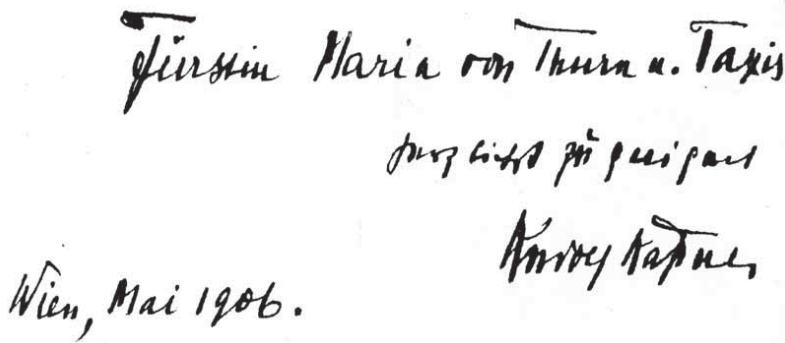 Fürstin Maria von Thurn u. Taxis
herzlichst zugeeignet
Rudolf Kaßner
Wien, Mai 1906.